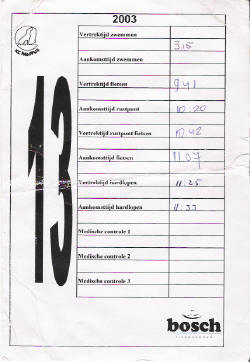 2003
Vertrektijd zwemmen
3.15
Aankomsttijd zwemmen
Vertrektijd fietsen
9 41
Aankomsttijd rustpunt
10.20
Vertrektijd rustpunt fietsen
10.42
Aankomsttijd fietsen
11.07
Vertrektijd hardlopen
11.25
Aankomsttijd hardlopen
Medische controle 1
Medische controle 2
Medische controle 3
13
bosch